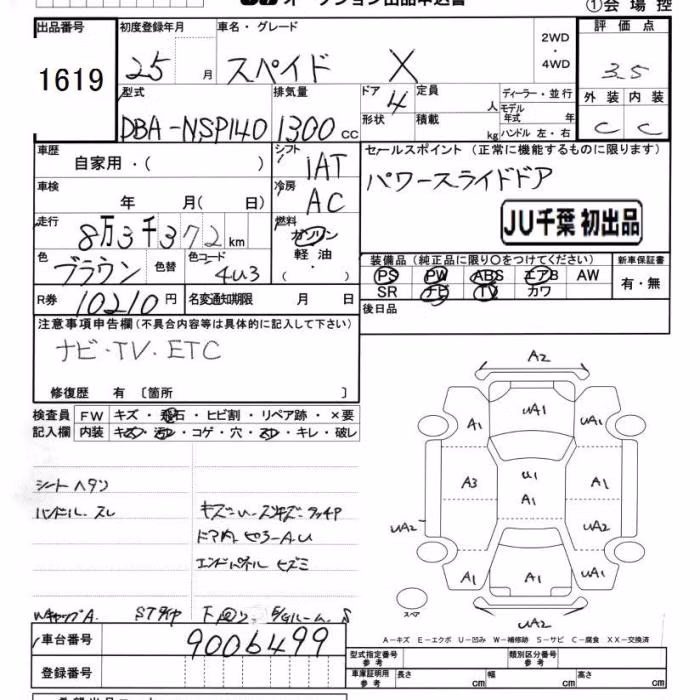 オークション出品申込書
①会場控
出品番号
1619
初度登録年月
25 月
車名・グレード
スペイド X
2WD
・
4WD
評価点
3.5
外装 内装
C C
型式
DBA-NSP140
排気量
1300 cc
ドア
4
形状
定員
人
積載
kg
ディーラー・並行
モデル年式 年
ハンドル 左・右
車歴
自家用・( )
シフト
IAT
セールスポイント (正常に機能するものに限ります)
パワースライドドア
JU千葉 初出品
車検
年 月( 日)
冷房
AC
走行
8万3千372km
燃料
ガソリン
軽油
( ・ )
色
ブラウン
色替
色コード
4U3
装備品 (純正品に限り○をつけてください)
PS PW ABS エアB AW
SR ナビ TV カワ
新車保証書
有・無
R券 10210円
名変通知期限 月 日
後日品
注意事項申告欄 (不具合内容等は具体的に記入して下さい)
ナビ・TV・ETC
修復歴 有 〔箇所 〕
検査員記入欄
FW キズ・飛石・ヒビ割・リペア跡・×要
内装 キズ・汚れ・コゲ・穴・スレ・キレ・破レ
シートヘタリ
ハンドル スレ
ドア内 ピラーAU
エンドパネル ヒズミ
WキャップA.
STタイヤ
下回り
E/Gルーム S
A2
UA1
A1
UA1
A3
U1
A1
A1
UA2
UA2
A1
A1
UA1
UA2
スペア
A－キズ E－エクボ U－凹み W－補修跡 S－サビ C－腐食 XX－交換済
車台番号
9006499
登録番号
型式指定番号
参考
類別区分番号
参考
車庫証明用
参考
長さ cm
幅 cm
高さ cm